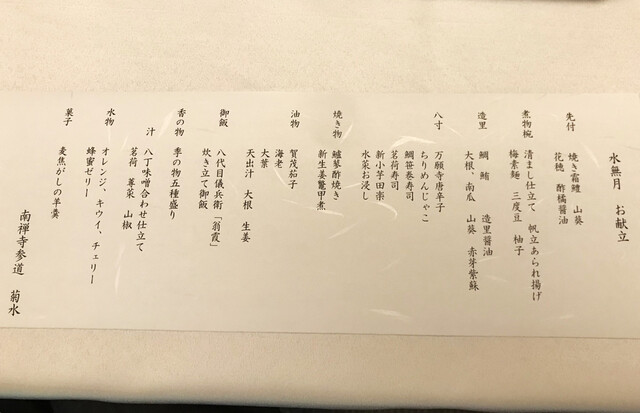 水無月　お献立
先付
焼き霜鱧　山葵
花穂　酢橘醤油
煮物椀
清まし仕立て　帆立あられ揚げ
梅素麺　三度豆　柚子
造里
鯛　鮪　造里醤油
大根、南瓜　山葵　赤芽紫蘇
八寸
万願寺唐辛子
ちりめんじゃこ
鯛笹巻寿司
茗荷寿司
新小芋田楽
水菜お浸し
焼き物
鱸蓼酢焼き
新生姜鼈甲煮
油物
賀茂茄子
海老
大葉
天出汁　大根　生姜
御飯
八代目儀兵衛「翁霞」
炊き立て御飯
香の物
季の物五種盛り
汁
八丁味噌合わせ仕立て
茗荷　蓴菜　山椒
水物
オレンジ、キウイ、チェリー
蜂蜜ゼリー
菓子
麦焦がしの羊羹
南禅寺参道　菊水